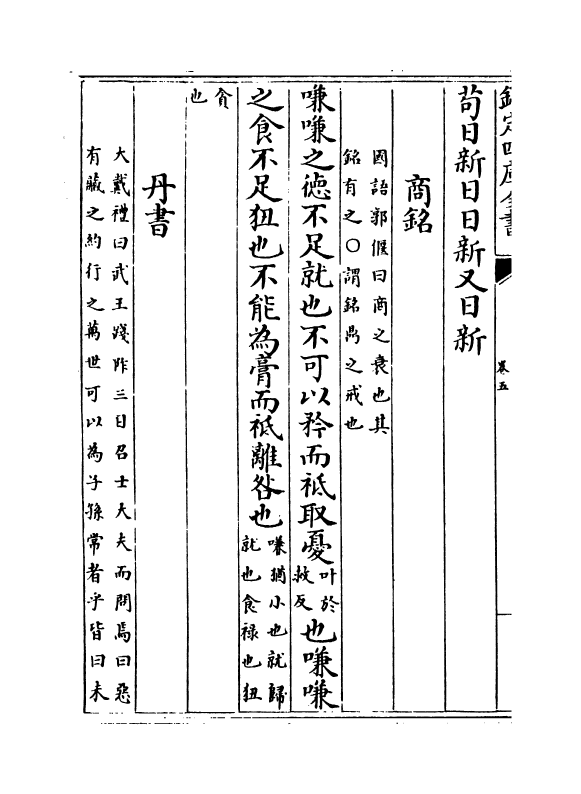 欽定四庫全書
卷五
苟日新日日新又日新
商銘
國語郭偃曰商之衰也其
銘有之〇謂銘鼎之戒也
嗛嗛之徳不足就也不可以矜而祗取憂叶於救反也嗛嗛
之食不足狃也不能為膏而祗離咎也嗛猶小也就歸就也食禄也狃
貪也
丹書
大戴禮曰武王踐阼三日召士大夫而問焉曰惡
有藏之約行之萬世可以為子孫常者乎皆曰未